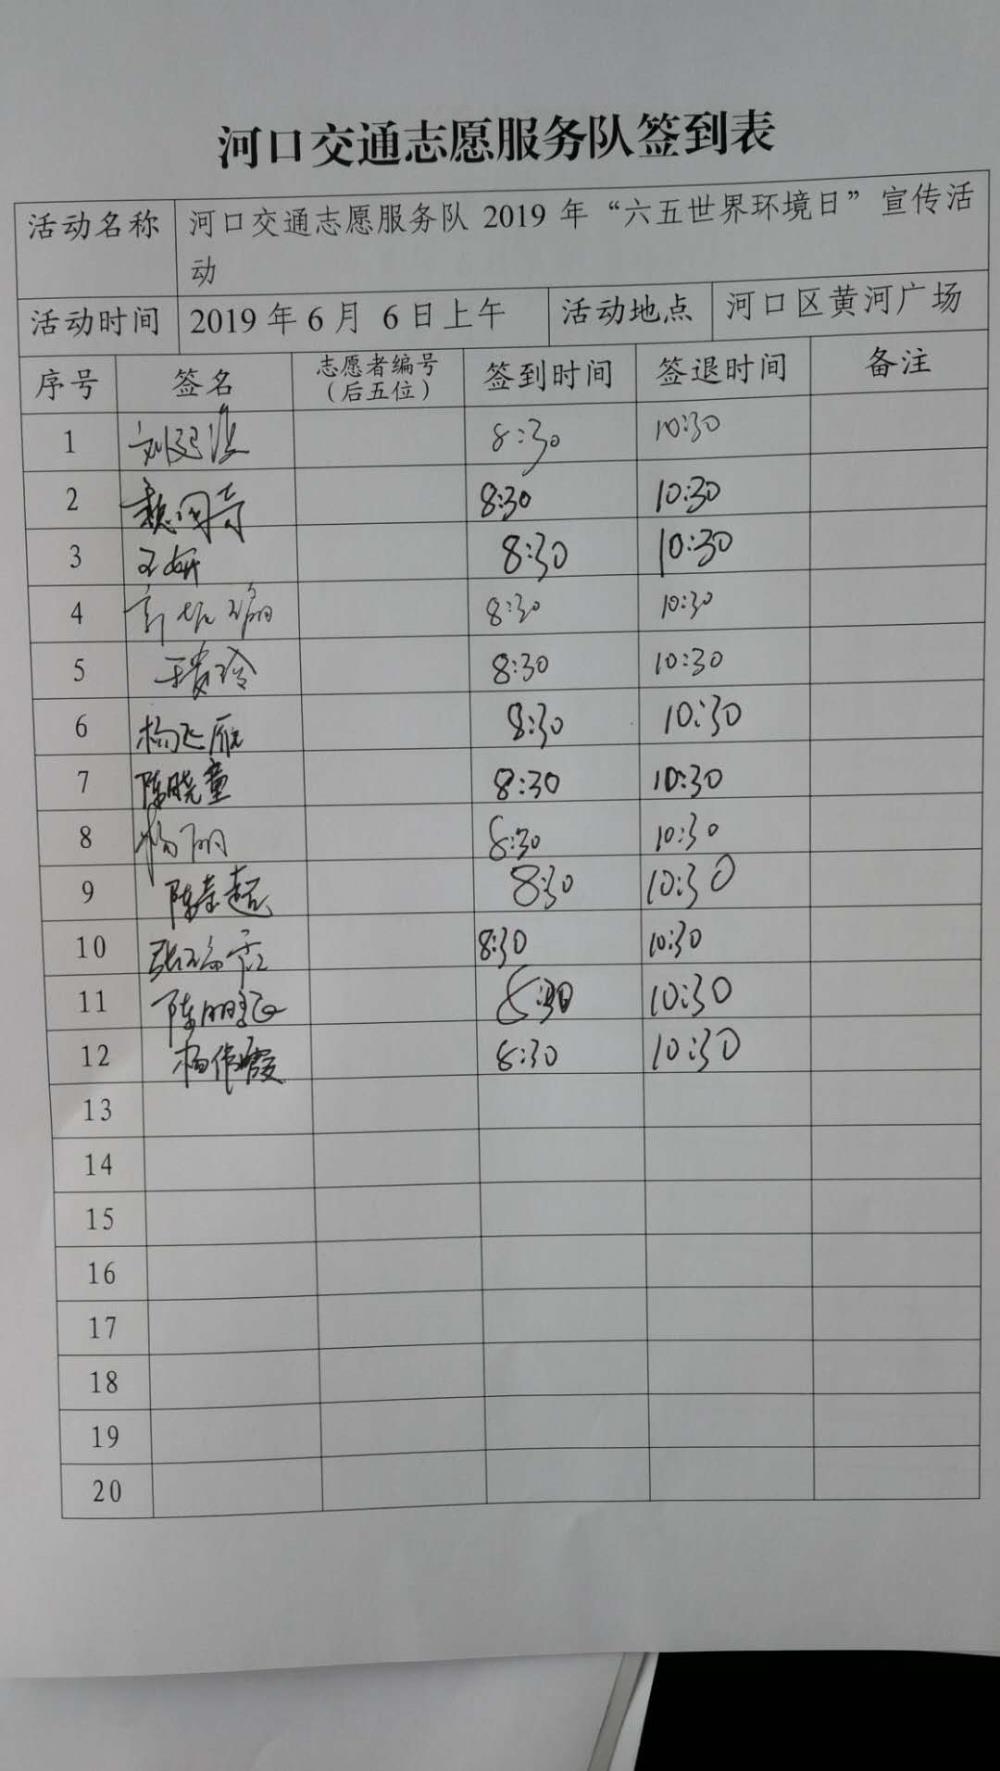 河口交通志愿服务队签到表
活动名称 河口交通志愿服务队 2019 年“六五世界环境日”宣传活
动
活动时间 2019 年 6 月 6 日上午 活动地点 河口区黄河广场
序号 签名 志愿者编号 签到时间 签退时间 备注
（后五位）
1 8:30 10:30
2 8:30 10:30
3 王妍 8:30 10:30
4 8:30 10:30
5 8:30 10:30
6 杨飞雁 8:30 10:30
7 陈晓童 8:30 10:30
8 杨丽 8:30 10:30
9 8:30 10:30
10 8:30 10:30
11 8:30 10:30
12 杨伟霞 8:30 10:30
13
14
15
16
17
18
19
20